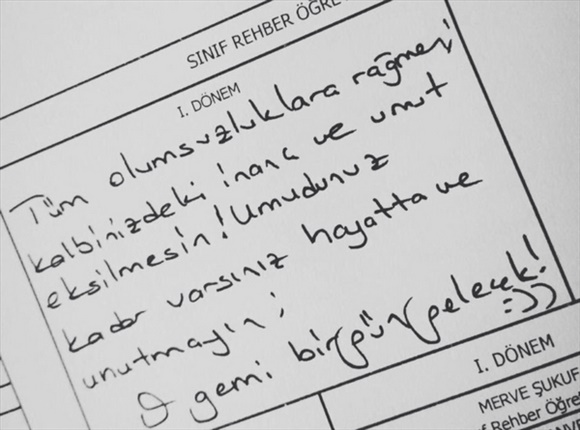 SINIF REHBER ÖĞRE
I. DÖNEM
Tüm olumsuzluklara rağmen;
kalbinizdeki inanç ve umut
eksilmesin! Umudunuz
kadar varsınız hayatta ve
unutmayın;
O gemi bir gün gelecek!
:))
I. DÖNEM
MERVE ŞUKUF
f Rehber Öğret